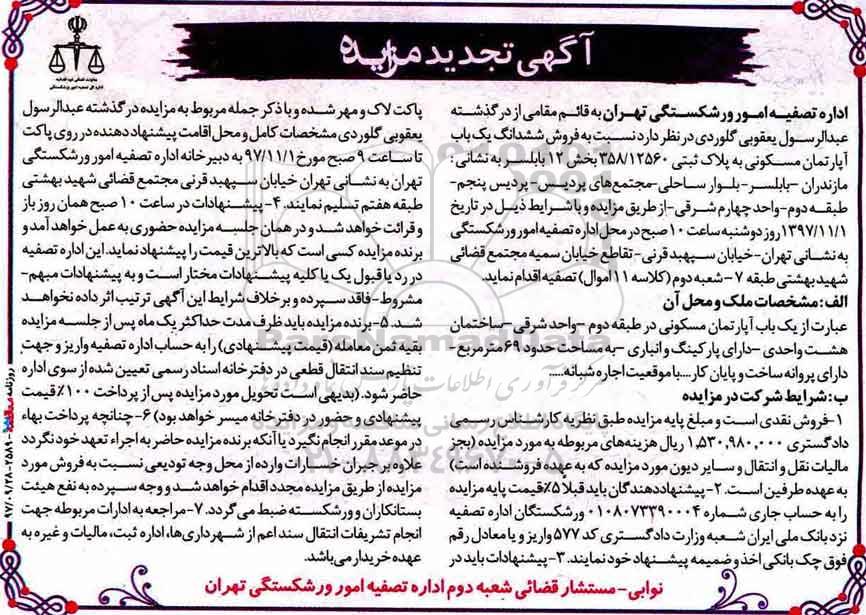 آگهی تجدید مزایده
اداره تصفیه امور ورشکستگی تهران به قائم مقامی از درگذشته
عبدالرسول یعقوبی گلوردی در نظر دارد نسبت به فروش ششدانگ یک باب
آپارتمان مسکونی به پلاک ثبتی ۳۵۸/۱۲۵۶۰ بخش ۱۲ بابلسر به نشانی :
مازندران -بابلسر- بلوار ساحلی-مجتمع‌های پردیس- پردیس پنجم-
طبقه دوم-واحد چهارم شرقی-از طریق مزایده و با شرایط ذیل در تاریخ
۱۳۹۷/۱۱/۱ روز دوشنبه ساعت ۱۰ صبح در محل اداره تصفیه امور ورشکستگی
به نشانی تهران-خیابان سپهبد قرنی- تقاطع خیابان سمیه مجتمع قضائی
شهید بهشتی طبقه ۷ -شعبه دوم (کلاسه ۱۱ اموال) تصفیه اقدام نماید.
الف: مشخصات ملک و محل آن
عبارت از یک باب آپارتمان مسکونی در طبقه دوم -واحد شرقی -ساختمان
هشت واحدی -دارای پارکینگ و انباری -به مساحت حدود ۶۹ متر مربع -
دارای پروانه ساخت و پایان کار....با موقعیت اجاره شبانه.....
ب: شرایط شرکت در مزایده
۱-فروش نقدی است و مبلغ پایه مزایده طبق نظریه کارشناس رسمی
دادگستری ۱,۵۳۰,۹۸۰,۰۰۰ ریال هزینه‌های مربوطه به مورد مزایده (بجز
مالیات نقل و انتقال و سایر دیون مورد مزایده که به عهده فروشنده است)
به عهده طرفین است. ۲- پیشنهاددهندگان باید قبلا ۵٪ قیمت پایه مزایده
را به حساب جاری شماره ۰۱۰۸۰۷۳۳۹۰۰۰۴ ورشکستگان اداره تصفیه
نزد بانک ملی ایران شعبه وزارت دادگستری کد ۵۷۷ واریز و یا معادل رقم
فوق چک بانکی اخذ و ضمیمه پیشنهاد خود نمایند. ۳- پیشنهادات باید در
پاکت لاک و مهر شده و با ذکر جمله مربوط به مزایده درگذشته عبدالرسول
یعقوبی گلوردی مشخصات کامل و محل اقامت پیشنهاد دهنده در روی پاکت
تا ساعت ۹ صبح مورخ ۹۷/۱۱/۱ به دبیرخانه اداره تصفیه امور ورشکستگی
تهران به نشانی تهران خیابان سپهبد قرنی مجتمع قضائی شهید بهشتی
طبقه هفتم تسلیم نمایند. ۴- پیشنهادات در ساعت ۱۰ صبح همان روز باز
و قرائت خواهد شد و در همان جلسه مزایده حضوری به عمل خواهد آمد و
برنده مزایده کسی است که بالاترین قیمت را پیشنهاد نماید. این اداره تصفیه
در رد یا قبول یک یا کلیه پیشنهادات مختار است و به پیشنهادات مبهم-
مشروط- فاقد سپرده و برخلاف شرایط این آگهی ترتیب اثر داده نخواهد
شد. ۵-برنده مزایده باید ظرف مدت حداکثر یک ماه پس از جلسه مزایده
بقیه ثمن معامله (قیمت پیشنهادی) را به حساب اداره تصفیه واریز و جهت
تنظیم سند انتقال قطعی در دفترخانه اسناد رسمی تعیین شده از سوی اداره
حاضر شود. (بدیهی است تحویل مورد مزایده پس از پرداخت ۱۰۰٪ قیمت
پیشنهادی و حضور در دفترخانه میسر خواهد بود) ۶-چنانچه پرداخت بهاء
در موعد مقرر انجام نگیرد یا آنکه برنده مزایده حاضر به اجراء تعهد خود نگردد
علاوه بر جبران خسارات وارده از محل وجه تودیعی نسبت به فروش مورد
مزایده از طریق مزایده مجدد اقدام خواهد شد و وجه سپرده به نفع هیئت
بستانکاران و ورشکسته ضبط می‌گردد. ۷-مراجعه به ادارات مربوطه جهت
انجام تشریفات انتقال سند اعم از شهرداری‌ها، اداره ثبت، مالیات و غیره به
عهده خریدار می‌باشد.
نوابی- مستشار قضائی شعبه دوم اداره تصفیه امور ورشکستگی تهران